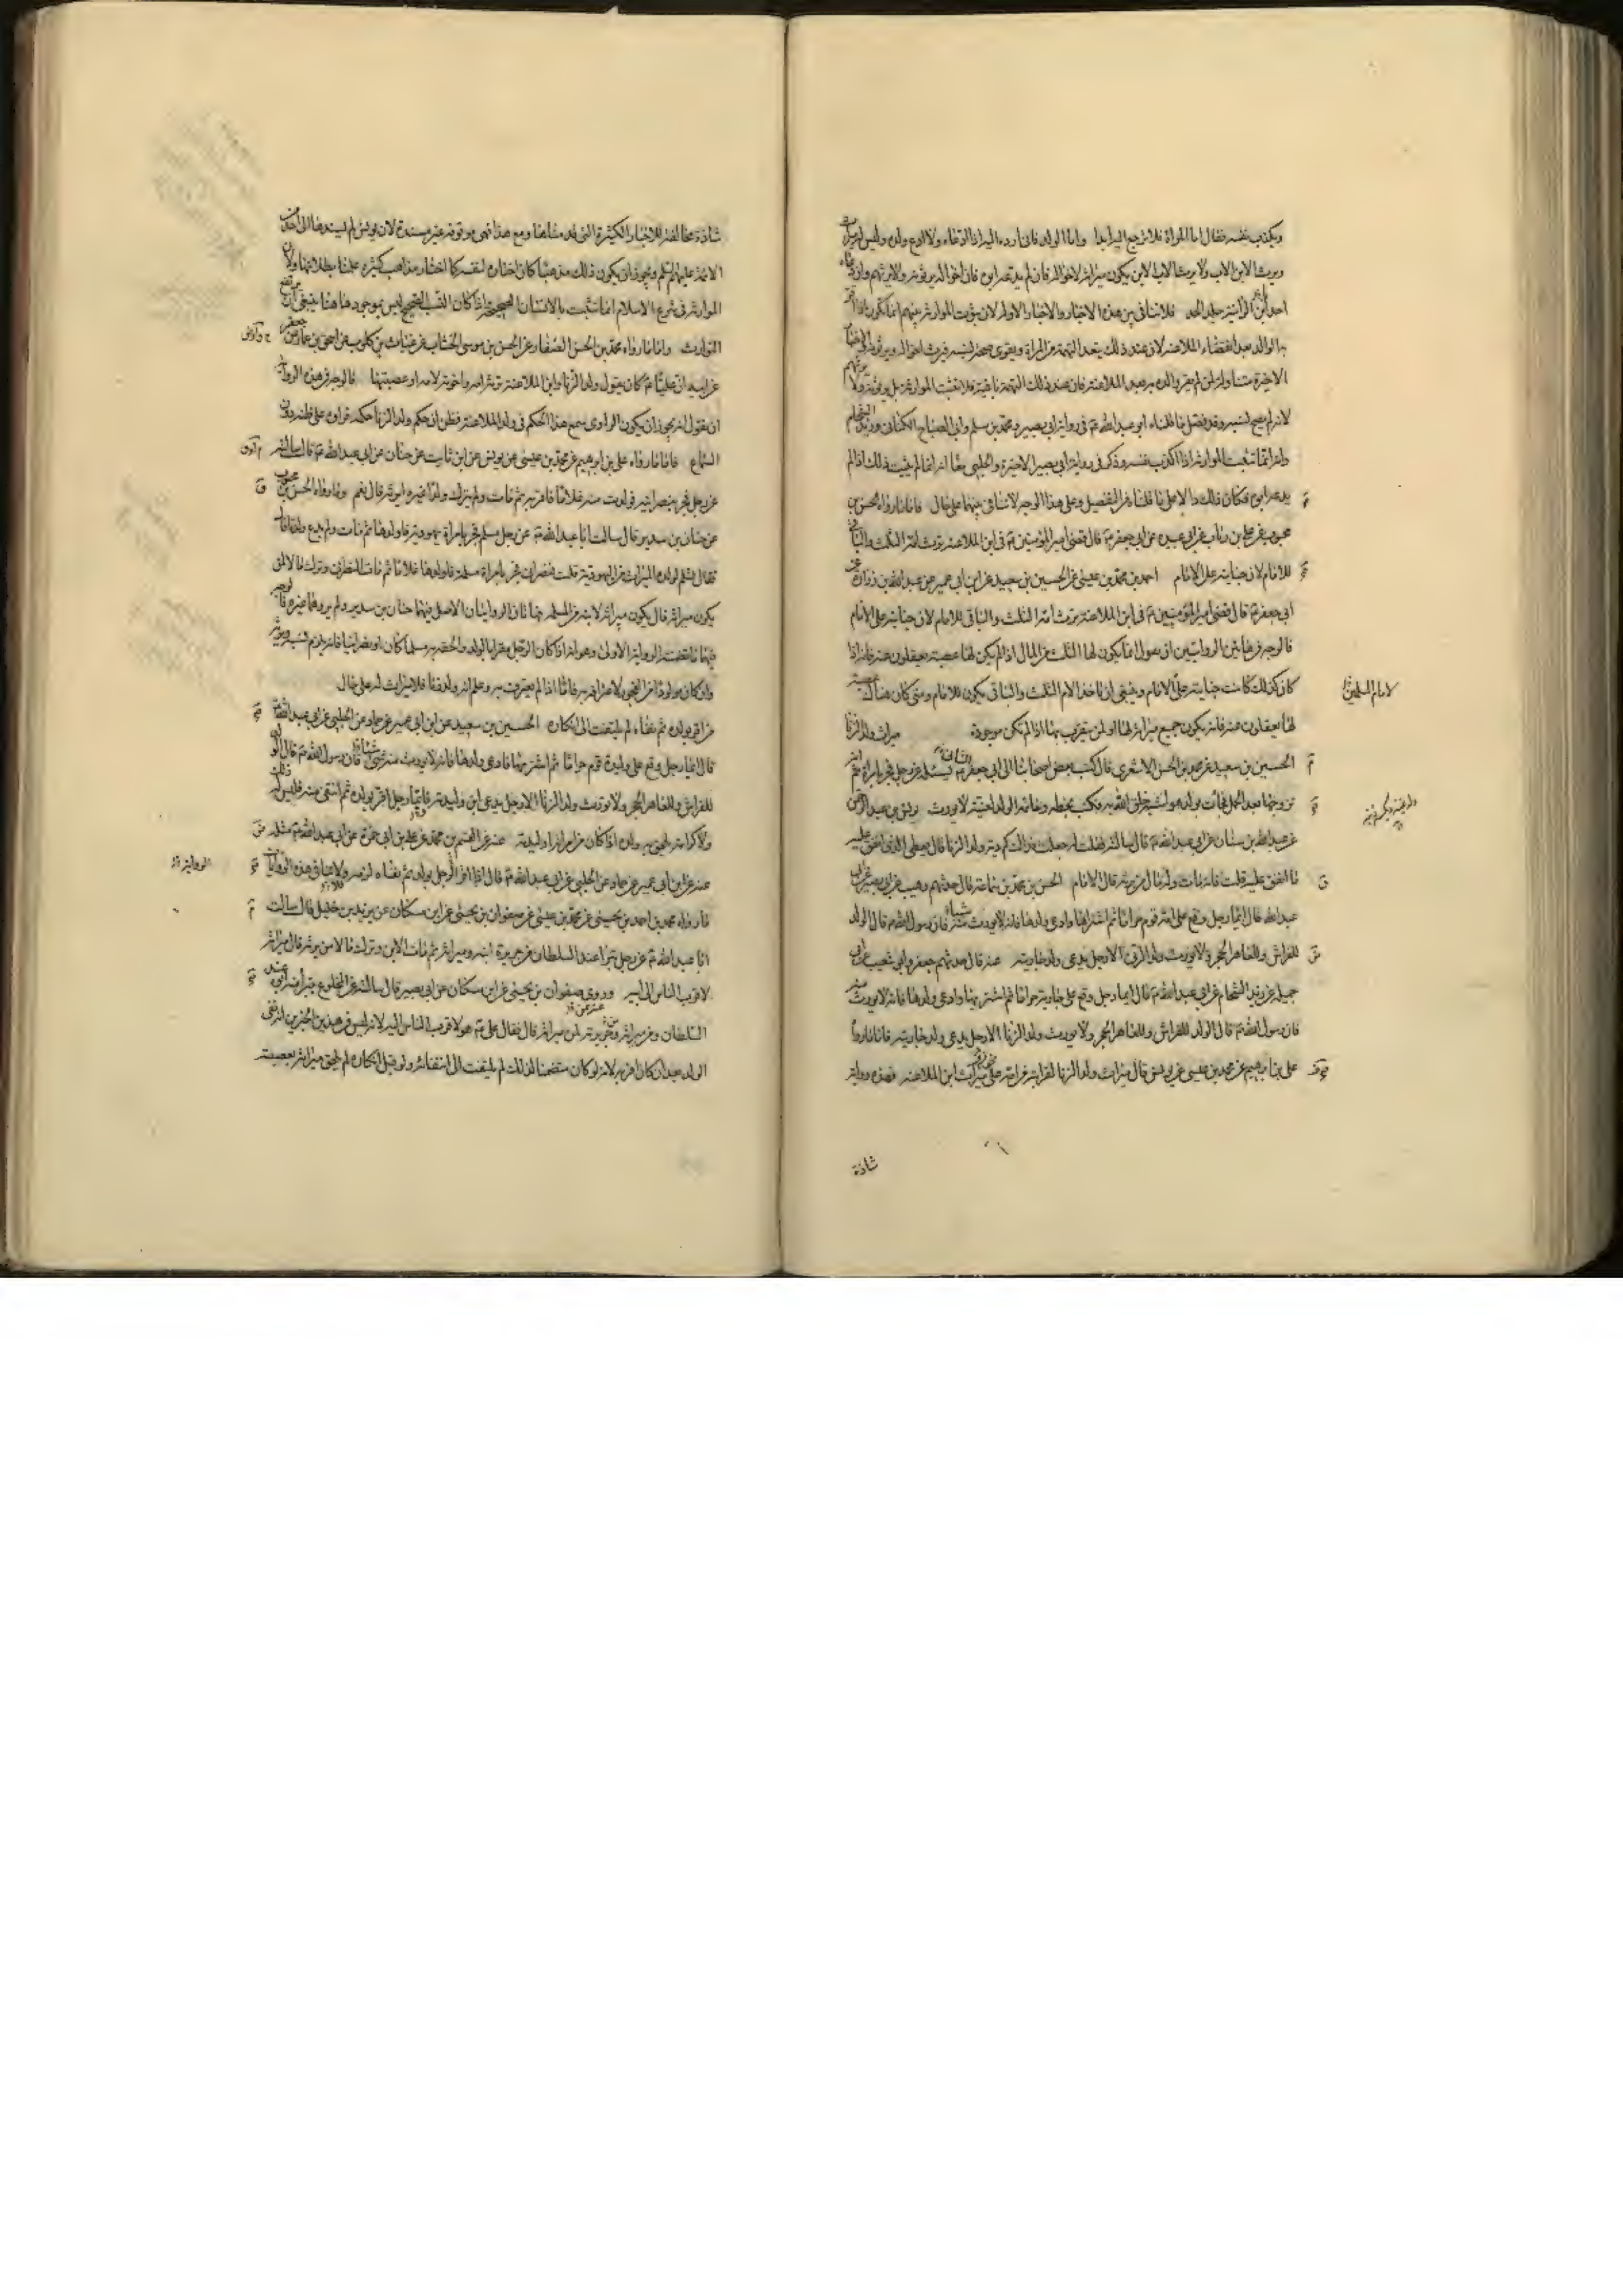 ويكذب نفسه فقال اما المراة فلا ترجع اليه ابدا واما الولد فاني ارده اليه اذا ادعاه ولا ادع ولده وليس له ميراث
ويرث الابن الاب ولا يرث الاب الابن يكون ميراثه لاخواله فان لم يدعه ابوه فان اخواله يرثونه ولا يرثهم وان دعاه
احد ابن الزانية جلد الحد فلا تنافي بين هذه الاخبار والاخبار الاولة لان ثبوت الموارثة بينهم انما يكون اذا اقر
به الوالد بعد انقضاء الملاعنة لان عند ذلك تبعد التهمة من المراة ويقوى صحة نسبه فيرث اخواله ويرثونه
الاخيرة متناولة لمن لم يقر والده به بعد الملاعنة فان عند ذلك التهمة باقية فلا تثبت الموارثة بل يرثونه ولا يرثهم
لانه لم يصح نسبه وقد فصل ما قلناه ابو عبد الله ع في رواية ابي بصير ومحمد بن مسلم وابي الصباح الكناني وزيد الشحام
وانه انما تثبت الموارثة اذا اكذب نفسه وذكر في رواية ابي بصير الاخيرة والحلبي معا انه انما لم يثبت ذلك اذا لم
يدعه ابوه فكان ذلك دالا على ما قلناه من التفصيل وعلى هذا الوجه لا تنافي بينهما على حال فاما ما رواه الحسن بن
محبوب عن علي بن رئاب عن ابي عبيدة عن ابي جعفر ع قال قضى امير المؤمنين ع في ابن الملاعنة ترث امه الثلث والباقي
للامام لان جنايته على الامام احمد بن محمد بن عيسى عن الحسين بن سعيد عن ابن ابي عمير عن عبد الله بن زرارة عن
ابي جعفر ع قال قضى امير المؤمنين ع في ابن الملاعنة ترث امه الثلث والباقي للامام لان جنايته على الامام
فالوجه في هاتين الروايتين ان نقول انما يكون لها الثلث من المال اذا لم يكن لها عصبة يعقلون عنه فانه اذا
كان كذلك كانت جنايته على الامام وينبغي ان تاخذ الام الثلث والباقي يكون للامام ومتى كان هناك عصبة
لامام المسلمين
لها يعقلون عنه فانه يكون جميع ميراثه لها او لمن يتقرب بها اذا لم تكن موجودة ميراث ولد الزنا
الحسين بن سعيد عن محمد بن الحسن الاشعري قال كتب بعض اصحابنا الى ابي جعفر الثاني ع يسئله عن رجل فجر بامراة ثم انه
تزوجها بعد الحمل فجاءت بولد هو اشبه خلق الله به فكتب بخطه وخاتمه الولد لغية لا يورث يونس بن عبد الرحمن
عن عبد الله بن سنان عن ابي عبد الله ع قال سالته فقلت له جعلت فداك كم دية ولد الزنا قال يعطى الذي انفق عليه
ما انفق عليه قلت فانه مات وله مال من يرثه قال الامام الحسن بن محمد بن سماعة قال حدثهم وهيب عن ابي بصير عن ابي
عبد الله قال ايما رجل وقع على امة قوم حراما ثم اشتراها وادعى ولدها فانه لا يورث منه شيئا فان رسول الله ص قال الولد
للفراش وللعاهر الحجر ولا يورث ولد الزنا الا رجل يدعي ولد جاريته عنه قال حدثهم جعفر وابو شعيب عن ابي
جميلة عن زيد الشحام عن ابي عبد الله ع قال ايما رجل وقع على جارية حراما ثم اشتراها وادعى ولدها فانه لا يورث منه
فان رسول الله ص قال الولد للفراش وللعاهر الحجر ولا يورث ولد الزنا الا رجل يدعي ولد جاريته فاما ما رواه
علي بن ابراهيم عن محمد بن عيسى عن يونس قال ميراث ولد الزنا لقرابته من امه على نحو ميراث ابن الملاعنة فهذه رواية
شاذة
شاذة مخالفة للاخبار الكثيرة التي قدمناها ومع هذا فهي موقوفة غير مسندة لان يونس لم يسندها الى احد من
الائمة عليهم السلم ويجوز ان يكون ذلك مذهبا كان اختاره لنفسه كما اختار مذاهب كثيرة علمنا بطلانها ولان
الموارثة في شرع الاسلام انما تثبت بالانساب الصحيحة فاذا كان النسب الصحيح ليس بموجود هاهنا ينبغي ان يرتفع
التوارث واما ما رواه محمد بن الحسن الصفار عن الحسن بن موسى الخشاب عن غياث بن كلوب عن اسحق بن عمار عن جعفر
عن ابيه ان عليا ع كان يقول ولد الزنا وابن الملاعنة ترثه امه واخوته لامه او عصبتها فالوجه في هذه الرواية
ان نقول انه يجوز ان يكون الراوي سمع هذا الحكم في ولد الملاعنة فظن ان حكم ولد الزنا حكمه فرواه على ظنه دون
السماع فاما ما رواه علي بن ابرهيم عن محمد بن عيسى عن يونس عن ابن ثابت عن حنان عن ابي عبد الله ع قال سالته
عن رجل فجر بنصرانية فولدت منه غلاما فاقر به ثم مات ولم يترك ولدا غيره ايرثه قال نعم وما رواه الحسن بن محبوب
عن حنان بن سدير قال سالت ابا عبد الله ع عن رجل مسلم فجر بامراة يهودية فاولدها ثم مات ولم يدع وارثا
فقال يسلم لولده الميراث من اليهودية قلت نصراني فجر بامراة مسلمة فاولدها غلاما ثم مات النصراني وترك مالا لمن
يكون ميراثه قال يكون ميراثه لابنه من المسلمة فهاتان الروايتان الاصل فيهما حنان بن سدير ولم يروهما غيره فالوجه
فيهما ما تضمنته الرواية الاولى وهو انه اذا كان الرجل مقرا بالولد والحقه به مسلما كان او نصرانيا فانه يلزمه نسبه ويرثه
فاما اذا لم يعترف به وعلم انه ولد زنا فلا ميراث له على حال
من اقر بولد ثم نفاه لم يلتفت الى انكاره الحسين بن سعيد عن ابن ابي عمير عن حماد عن الحلبي عن ابي عبد الله ع
قال ايما رجل وقع على وليدة قوم حراما ثم اشتراها فادعى ولدها فانه لا يورث منه شئ فان رسول الله ص قال الولد
للفراش وللعاهر الحجر ولا يورث ولد الزنا الا رجل يدعي ابن وليدته وايما رجل اقر بولده ثم انتفى منه فليس له ذلك
ولا كرامة يلحق به ولده اذا كان من امراته او وليدته عنه عن القسم بن محمد عن علي بن ابي حمزة عن ابي عبد الله ع مثله
عنه عن ابن ابي عمير عن حماد عن الحلبي عن ابي عبد الله ع قال اذا اقر الرجل بولد ثم نفاه لزمه ولا ينافي هذه الروايات
ما رواه محمد بن احمد بن يحيى عن محمد بن عيسى عن صفوان بن يحيى عن ابن مسكان عن يزيد بن خليل قال سالت
ابا عبد الله ع عن رجل تبرا عند السلطان من جريرة ابنه وميراثه ثم مات الابن وترك مالا من يرثه قال ميراثه
لاقرب الناس الى ابيه وروى صفوان بن يحيى عن ابن مسكان عن ابي بصير قال سالته عن المخلوع يتبرا منه ابوه عند
السلطان ومن ميراثه وجريرته لمن ميراثه قال فقال علي ع هو لاقرب الناس اليه لانه ليس في هذين الخبرين انه نفى
الولد بعد ان كان اقر به لانه لو كان متضمنا لذلك لم يلتفت الى انتفائه ولو قبل انكاره لم يلحق ميراثه بعصبته